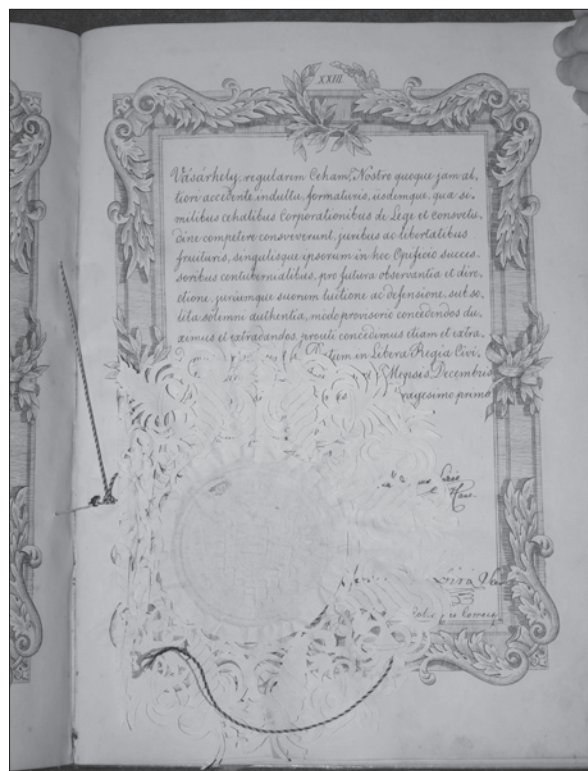 XXIII
Vásárhely, regularem Ceham, Nostro quoque jam al,
tiori accedente indultu, formaturis, iisdemque, qua si,
milibus cehalibus Corporationibus de Lege et consvetu,
dine competere consveverunt, juribus ac libertatibus
fruituris, singulisque ipsorum in hoc Opificio succes,
soribus contubernialibus, pro futura observantia et dire,
ctione, juriumque suorum tuitione ac defensione, sub so,
lita solemni authentia, modo provisorio concedendos du,
ximus et extradandos, prouti concedimus etiam et extra,
Datum in Libera Regia Civi,
Mensis Decembris
ragesimo primo